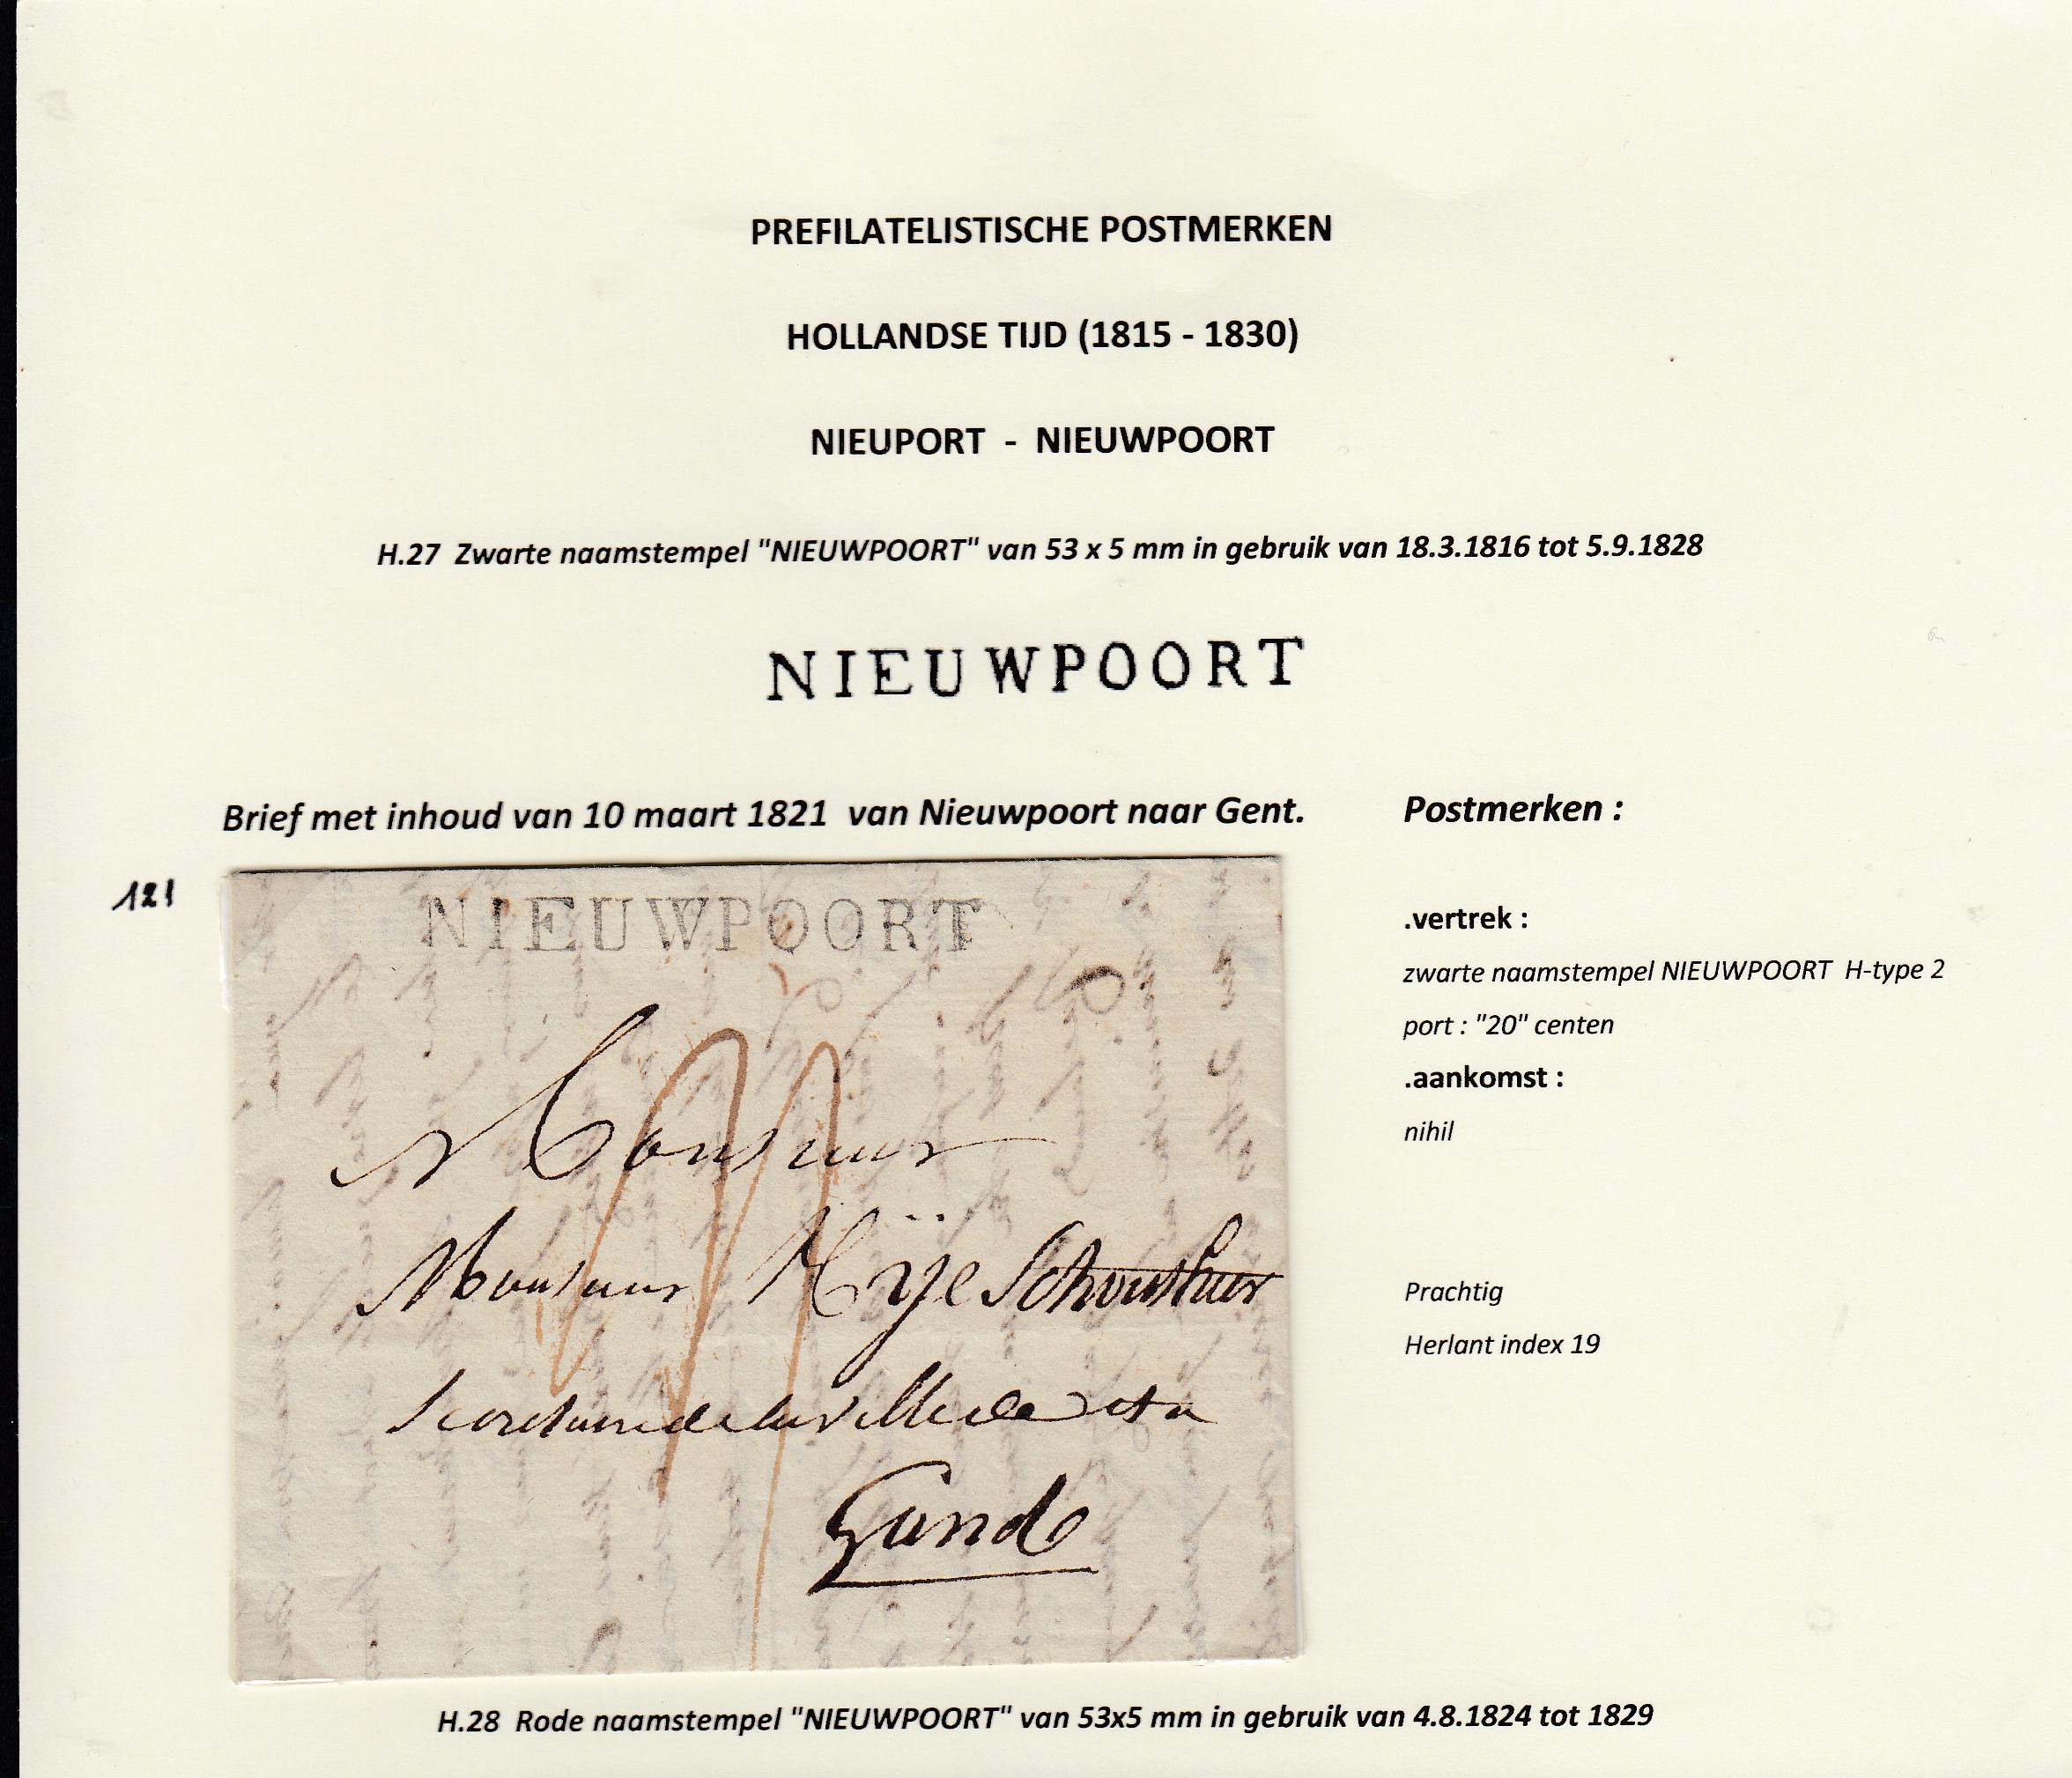 PREFILATELISTISCHE POSTMERKEN
HOLLANDSE TIJD (1815 - 1830)
NIEUPORT - NIEUWPOORT
H.27 Zwarte naamstempel "NIEUWPOORT" van 53 x 5 mm in gebruik van 18.3.1816 tot 5.9.1828
NIEUWPOORT
Brief met inhoud van 10 maart 1821 van Nieuwpoort naar Gent.
121
NIEUWPOORT
Monsieur
Monsieur
Secretaire de la ville de et a
Gand
Postmerken :
.vertrek :
zwarte naamstempel NIEUWPOORT H-type 2
port : "20" centen
.aankomst :
nihil
Prachtig
Herlant index 19
H.28 Rode naamstempel "NIEUWPOORT" van 53x5 mm in gebruik van 4.8.1824 tot 1829